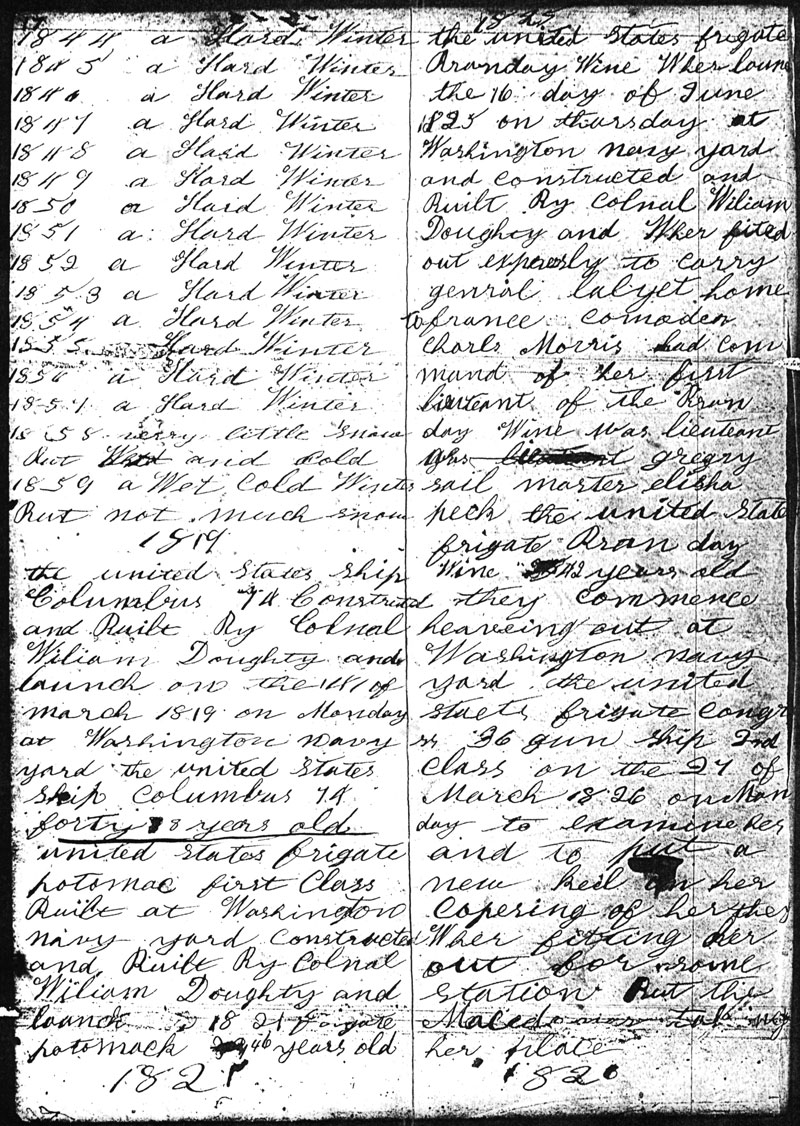 1844 a Hard Winter
1845 a Hard Winter
1846 a Hard Winter
1847 a Hard Winter
1848 a Hard Winter
1849 a Hard Winter
1850 a Hard Winter
1851 a Hard Winter
1852 a Hard Winter
1853 a Hard Winter
1854 a Hard Winter
1855 Hard Winter
1856 a Hard Winter
1857 a Hard Winter
1858 verry little snow
But and Cold
1859 a Wet Cold Winter
But not much snow
1819
the united states ship
Columbus 74 Constructed
and Built By Colnal
Wiliam Doughty and
launch on the of
march 1819 on Monday
at Washington navy
yard the united states
ship Columbus 74
forty 8 years old
united states frigate
potomac first Class
Built at Washington
navy yard Constructed
and Built By Colnal
Wiliam Doughty and
launch 1821 frigate
potomack 46 years old
182
1825
the united states frigate
Branday Wine Wher launc
the 16 day of June
1825 on thursday at
Washington navy yard
and constructed and
Built By Colnal Wiliam
Doughty and Wher fited
out expressly to carry
genral lafyet home
to france comodor
Charls Morris had com
mand of her first
lieuteant of the Bran
day Wine was lieuteant
gregry
sail master elisha
peck the united State
frigate Bran day
Wine 42 years old
they commence
heaveing out at
Washington navy
yard the united
staets frigate Congr
ss 36 gun ship 2nd
Class on the 27 of
March 1826 on Mon
day to examine her
and to put a
new keil on her
Copering of her they
Wher fitting her
out for some
station But the
Macedonian
her place
1826